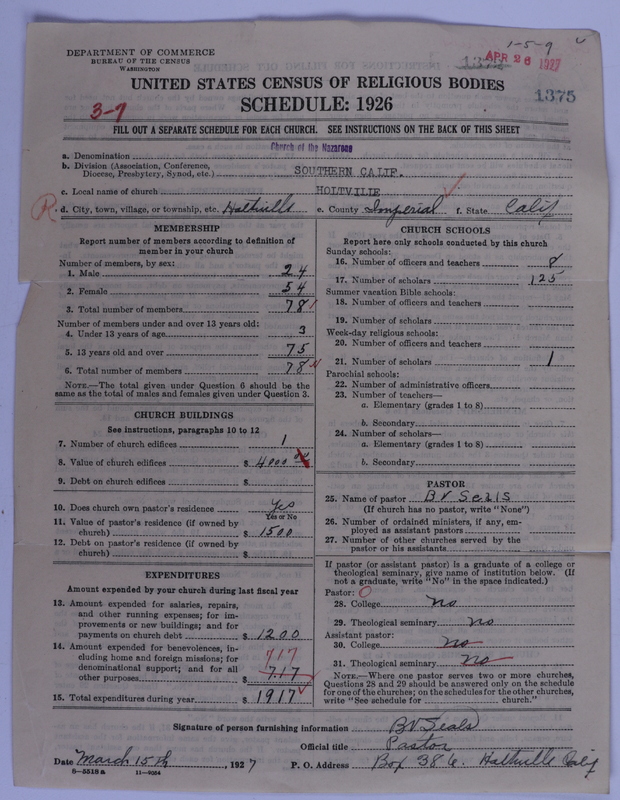 1-5-9
DEPARTMENT OF COMMERCE
BUREAU OF THE CENSUS
WASHINGTON
APR 26 1927
1374
UNITED STATES CENSUS OF RELIGIOUS BODIES
3-9
SCHEDULE: 1926
1375
FILL OUT A SEPARATE SCHEDULE FOR EACH CHURCH. SEE INSTRUCTIONS ON THE BACK OF THIS SHEET
a. Denomination Church of the Nazarene
b. Division (Association, Conference, Diocese, Presbytery, Synod, etc.) SOUTHERN CALIF.
c. Local name of church HOLTVILLE
R d. City, town, village, or township, etc. Holtville e. County Imperial f. State Calif
MEMBERSHIP
Report number of members according to definition of
member in your church
Number of members, by sex:
1. Male 24
2. Female 54
3. Total number of members 78
Number of members under and over 13 years old:
4. Under 13 years of age 3
5. 13 years old and over 75
6. Total number of members 78
NOTE.—The total given under Question 6 should be
same as the total of males and females given under Question 3.
CHURCH BUILDINGS
See instructions, paragraphs 10 to 12
7. Number of church edifices 1
8. Value of church edifices $ 4000 00
9. Debt on church edifices $
10. Does church own pastor's residence Yes
Yes or No
11. Value of pastor's residence (if owned by
church) $ 1500
12. Debt on pastor's residence (if owned by
church) $
EXPENDITURES
Amount expended by your church during last fiscal year
13. Amount expended for salaries, repairs,
and other running expenses; for im-
provements or new buildings; and for
payments on church debt $ 1200
14. Amount expended for benevolences, in-
cluding home and foreign missions; for
denominational support; and for all
other purposes $ 7.17
717
15. Total expenditures during year $ 1917
CHURCH SCHOOLS
Report here only schools conducted by this church
Sunday schools:
16. Number of officers and teachers 8
17. Number of scholars 125
Summer vacation Bible schools:
18. Number of officers and teachers
19. Number of scholars
Week-day religious schools:
20. Number of officers and teachers
21. Number of scholars 1
Parochial schools:
22. Number of administrative officers
23. Number of teachers—
a. Elementary (grades 1 to 8)
b. Secondary
24. Number of scholars—
a. Elementary (grades 1 to 8)
b. Secondary
PASTOR
25. Name of pastor B V Seals
(If church has no pastor, write "None")
26. Number of ordained ministers, if any, em-
ployed as assistant pastors
27. Number of other churches served by the
pastor or his assistants
If pastor (or assistant pastor) is a graduate of a college or
theological seminary, give name of institution below. (If
not a graduate, write "No" in the space indicated.)
Pastor: O
28. College no
29. Theological seminary no
Assistant pastor:
30. College no
31. Theological seminary no
NOTE.—Where one pastor serves two or more churches,
Questions 28 and 29 should be answered only on the schedule
for one of the churches; on the schedules for the other churches,
write "See schedule for church."
Signature of person furnishing information BV Seals
Official title Pastor
Date March 15th, 1927 P. O. Address Box 386. Holtville Calif
8—5518 a 11—9064